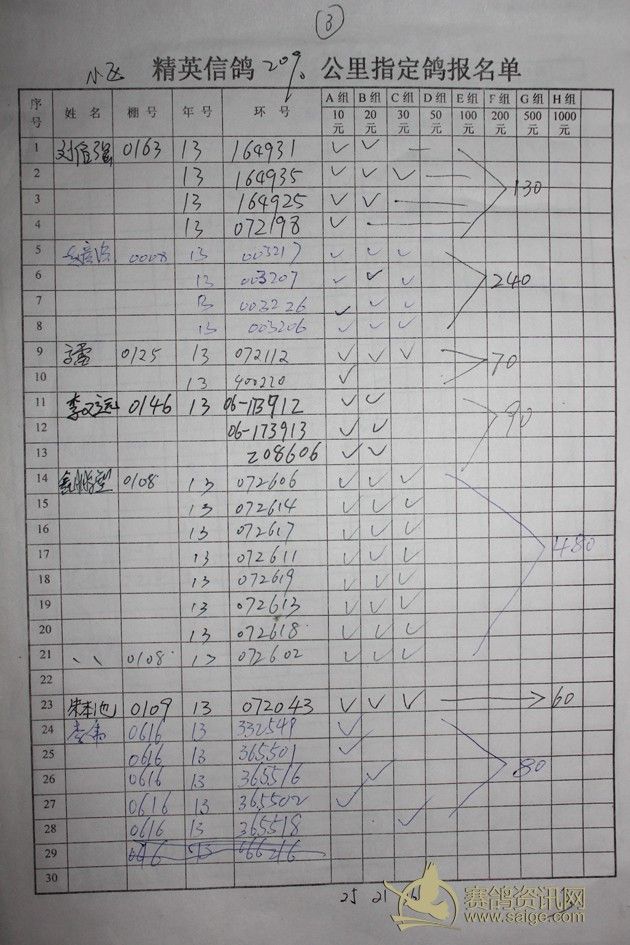 ③
小飞 精英信鸽 20% 公里指定鸽报名单
序号 姓名 棚号 年号 环号 A组10元 B组20元 C组30元 D组50元 E组100元 F组200元 G组500元 H组1000元
1 0163 13 164931 ✓ ✓ —
2 13 164935 ✓ ✓ ✓ — 130
3 13 164925 ✓ ✓ —
4 13 072198 ✓ —
5 0008 13 003217 ✓ ✓ ✓
6 13 003207 ✓ ✓ ✓ 240
7 13 003226 ✓ ✓ ✓
8 13 003206 ✓ ✓ ✓
9 0125 13 072112 ✓ ✓ ✓ 70
10 13 400220 ✓
11 李文远 0146 13 06-173912 ✓ ✓ 90
12 06-173913 ✓ ✓
13 208606 ✓ ✓
14 0108 13 072606 ✓ ✓ ✓
15 13 072614 ✓ ✓ ✓
16 13 072617 ✓ ✓ ✓
17 13 072611 ✓ ✓ ✓ 480
18 13 072619 ✓ ✓ ✓
19 13 072613 ✓ ✓ ✓
20 13 072618 ✓ ✓ ✓
21 、、 0108 13 072602 ✓ ✓ ✓
22
23 朱本池 0109 13 072043 ✓ ✓ ✓ → 60
24 李伟 0616 13 332549 ✓
25 0616 13 365501 ✓
26 0616 13 365516 ✓ 80
27 0616 13 365502 ✓
28 0616 13 365518 ✓
29
30
25 21
赛鸽资讯网
www.saige.com